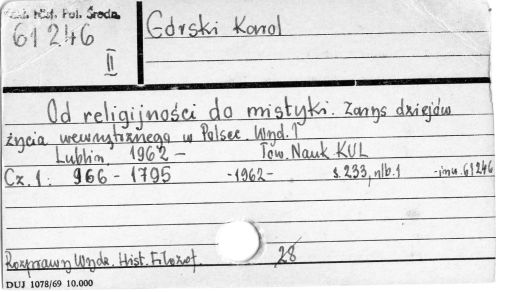 Zakł. Hist. Pol. Średn.
61246
II
Górski Karol
Od religijności do mistyki. Zarys dziejów
życia wewnętrznego w Polsce. Wyd. 1
Lublin, 1962 – Tow. Nauk KUL
Cz. 1: 966 – 1795 -1962- s. 233, nlb. 1 -inw. 61246
Rozprawy Wydz. Hist. Filozof. 28
DUJ 1078/69 10.000